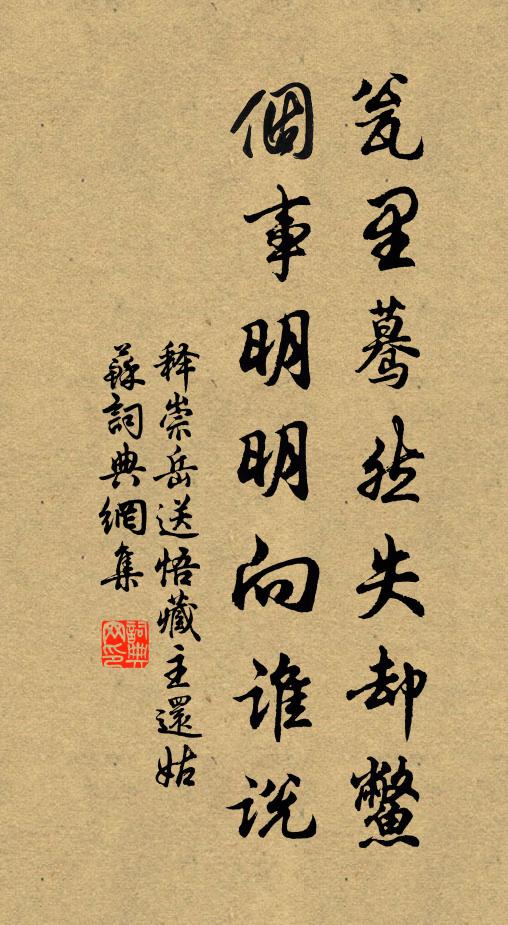 瓮里驀然失却鱉
個事明明向誰説
释崇岳送悟藏主還姑
蘇詞典網集
詞典网印